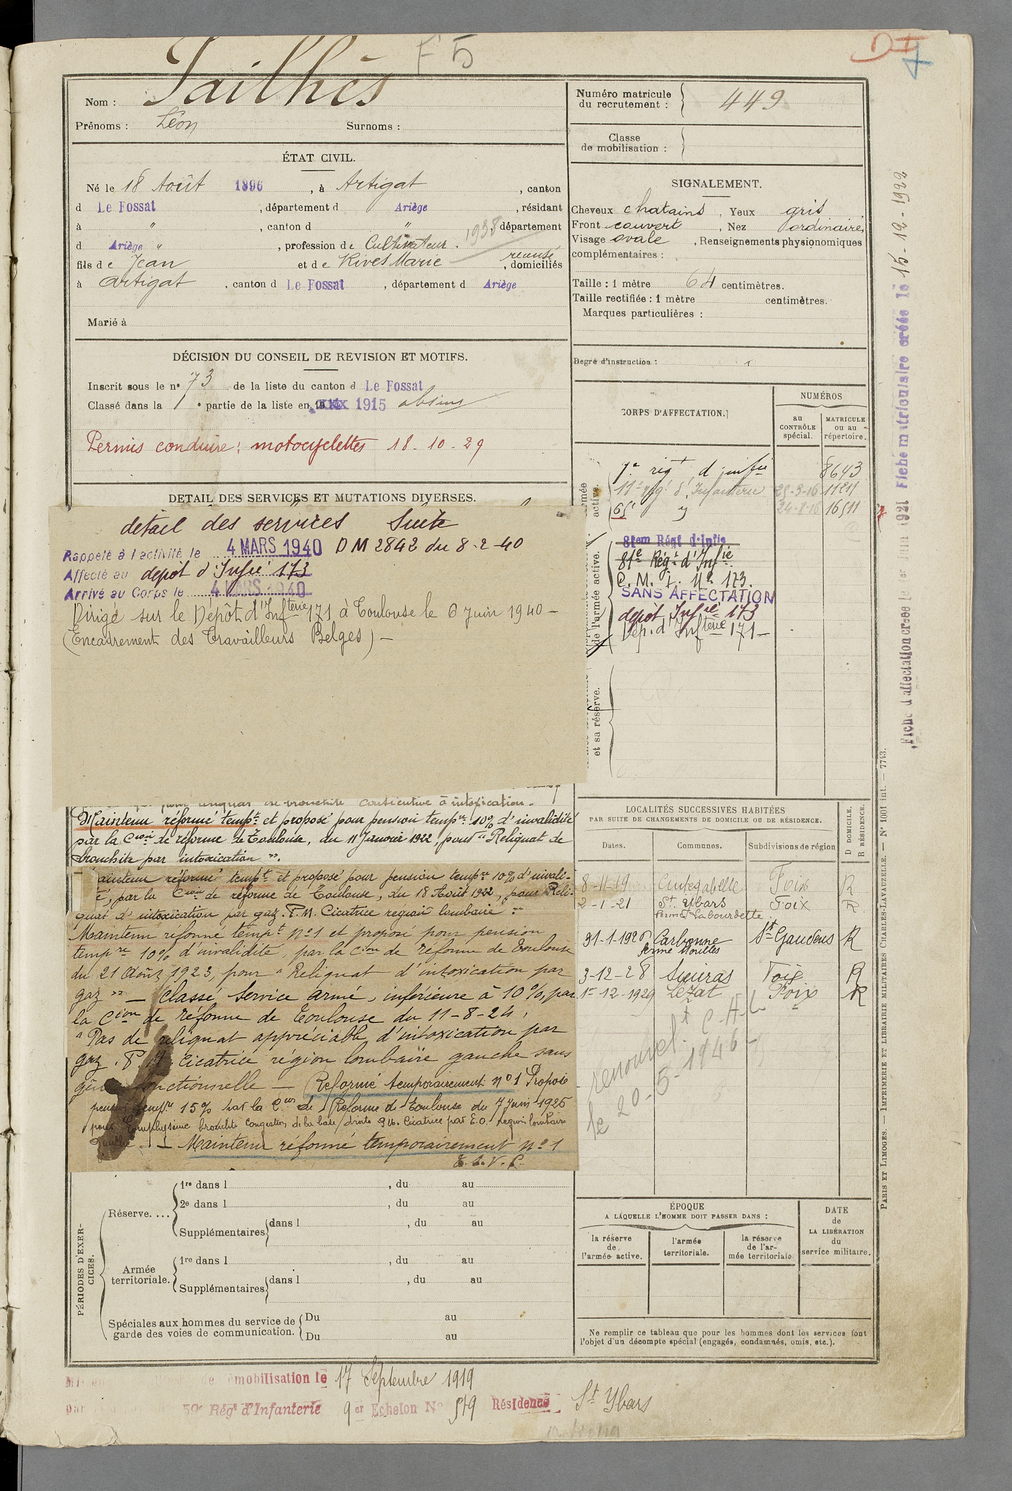 F 5
Nom : Tailhès
Prénoms : Léon Surnoms :
ÉTAT CIVIL.
Né le 18 Août 1896, à Artigat, canton
d Le Fossat, département d Ariège, résidant
à " , canton d " département
d Ariège " , profession de Cultivateur. 1938
fils de Jean et de Rives Marie , domiciliés
à Artigat, canton d Le Fossat, département d Ariège
Marié à
DÉCISION DU CONSEIL DE REVISION ET MOTIFS.
Inscrit sous le n° 73 de la liste du canton d Le Fossat
Classé dans la 1e partie de la liste en 1915 absent
Permis conduire : motocyclettes 18-10-29
DETAIL DES SERVICES ET MUTATIONS DIVERSES.
détail des services Suite
Rappelé à l'activité le 4 MARS 1940 DM 2842 du 8-2-40
Affecté au dépôt d'Infie 173
Arrivé au Corps le 4 MARS 1940
Dirigé sur le Dépôt d'Infterie 171 à Toulouse le 6 Juin 1940 -
(Encadrement des Travailleurs Belges) -
consécutive à intoxication.
Maintenu réformé tempre et proposé pour pension tempre 10% d'invalidité
par la Cion de réforme de Toulouse, du 11 Janvier 1922, pour "Reliquat de
bronchite par intoxication".
Maintenu réformé tempre et proposé pour pension tempre 10% d'invali-
té, par la Cion de réforme de Toulouse, du 18 Août 1922, pour Reli-
quat d'intoxication par gaz. P.M. Cicatrice région lombaire"
Maintenu réformé tempre n°1 et proposé pour pension
tempre 10% d'invalidité par la Cion de réforme de Toulouse
du 21 Août 1923, pour "Reliquat d'intoxication par
gaz" - Classé Service armé, inférieure à 10%, par
la Cion de réforme de Toulouse du 11-8-24,
"Pas de reliquat appréciable d'intoxication par
gaz. P.M. Cicatrice région lombaire gauche sans
gêne fonctionnelle - Réformé temporairement n°1 Proposé
pension tempre 15% par la Cion de Réforme de Toulouse du 7 Juin 1925
pour Emphysème
- Maintenu réformé temporairement n°1
T.S.V.P.
PÉRIODES D'EXERCICES.
Réserve.... 1re dans l , du au
2e dans l , du au
Supplémentaires dans l , du au
Armée territoriale. 1re dans l , du au
Supplémentaires dans l , du au
Spéciales aux hommes du service de garde des voies de communication. Du au
Du au
mobilisation le 17 Septembre 1919
59e Rég' d'Infanterie 9 er Echelon N° 519 Résidence St Ybars
Numéro matricule du recrutement : 449
Classe de mobilisation :
SIGNALEMENT.
Cheveux chatains, Yeux gris
Front couvert, Nez ordinaire,
Visage ovale, Renseignements physionomiques
complémentaires :
Taille : 1 mètre 64 centimètres.
Taille rectifiée : 1 mètre centimètres.
Marques particulières :
Degré d'instruction :
CORPS D'AFFECTATION. NUMÉROS
au CONTRÔLE spécial. MATRICULE ou au répertoire.
7e régt d'infie 8643
11e rég. d'Infanterie 25-3-16
65e " 16511
81em Régt d'Infie
81e Régt d'Infie
C. M. I. N° 173.
SANS AFFECTATION
dépôt Infie 173
Dép. d'Infterie 171 -
de l'armée active.
et sa réserve.
LOCALITÉS SUCCESSIVES HABITÉES
PAR SUITE DE CHANGEMENTS DE DOMICILE OU DE RÉSIDENCE.
D DOMICILE. R RÉSIDENCE.
Dates. Communes. Subdivisions de région
8-11-19 Cintegabelle Foix R
2-1-21 St Ybars Foix R
ferme Labourdette
31-1-1926 Carbonne St Gaudens R
3-12-28 Sieuras Foix R
1er-12-1929 Lézat Foix R
le 20-5-1946
ÉPOQUE
A LAQUELLE L'HOMME DOIT PASSER DANS :
DATE de LA LIBÉRATION du service militaire.
la réserve de l'armée active. l'armée territoriale. la réserve de l'armée territoriale
Ne remplir ce tableau que pour les hommes dont les services font
l'objet d'un décompte spécial (engagés, condamnés, omis, etc.).
Fiche matriculaire créée le 15-12-1922
PARIS ET LIMOGES. — IMPRIMERIE ET LIBRAIRIE MILITAIRES CHARLES-LAVAUZELLE. — N° 1001 int. — 7743.